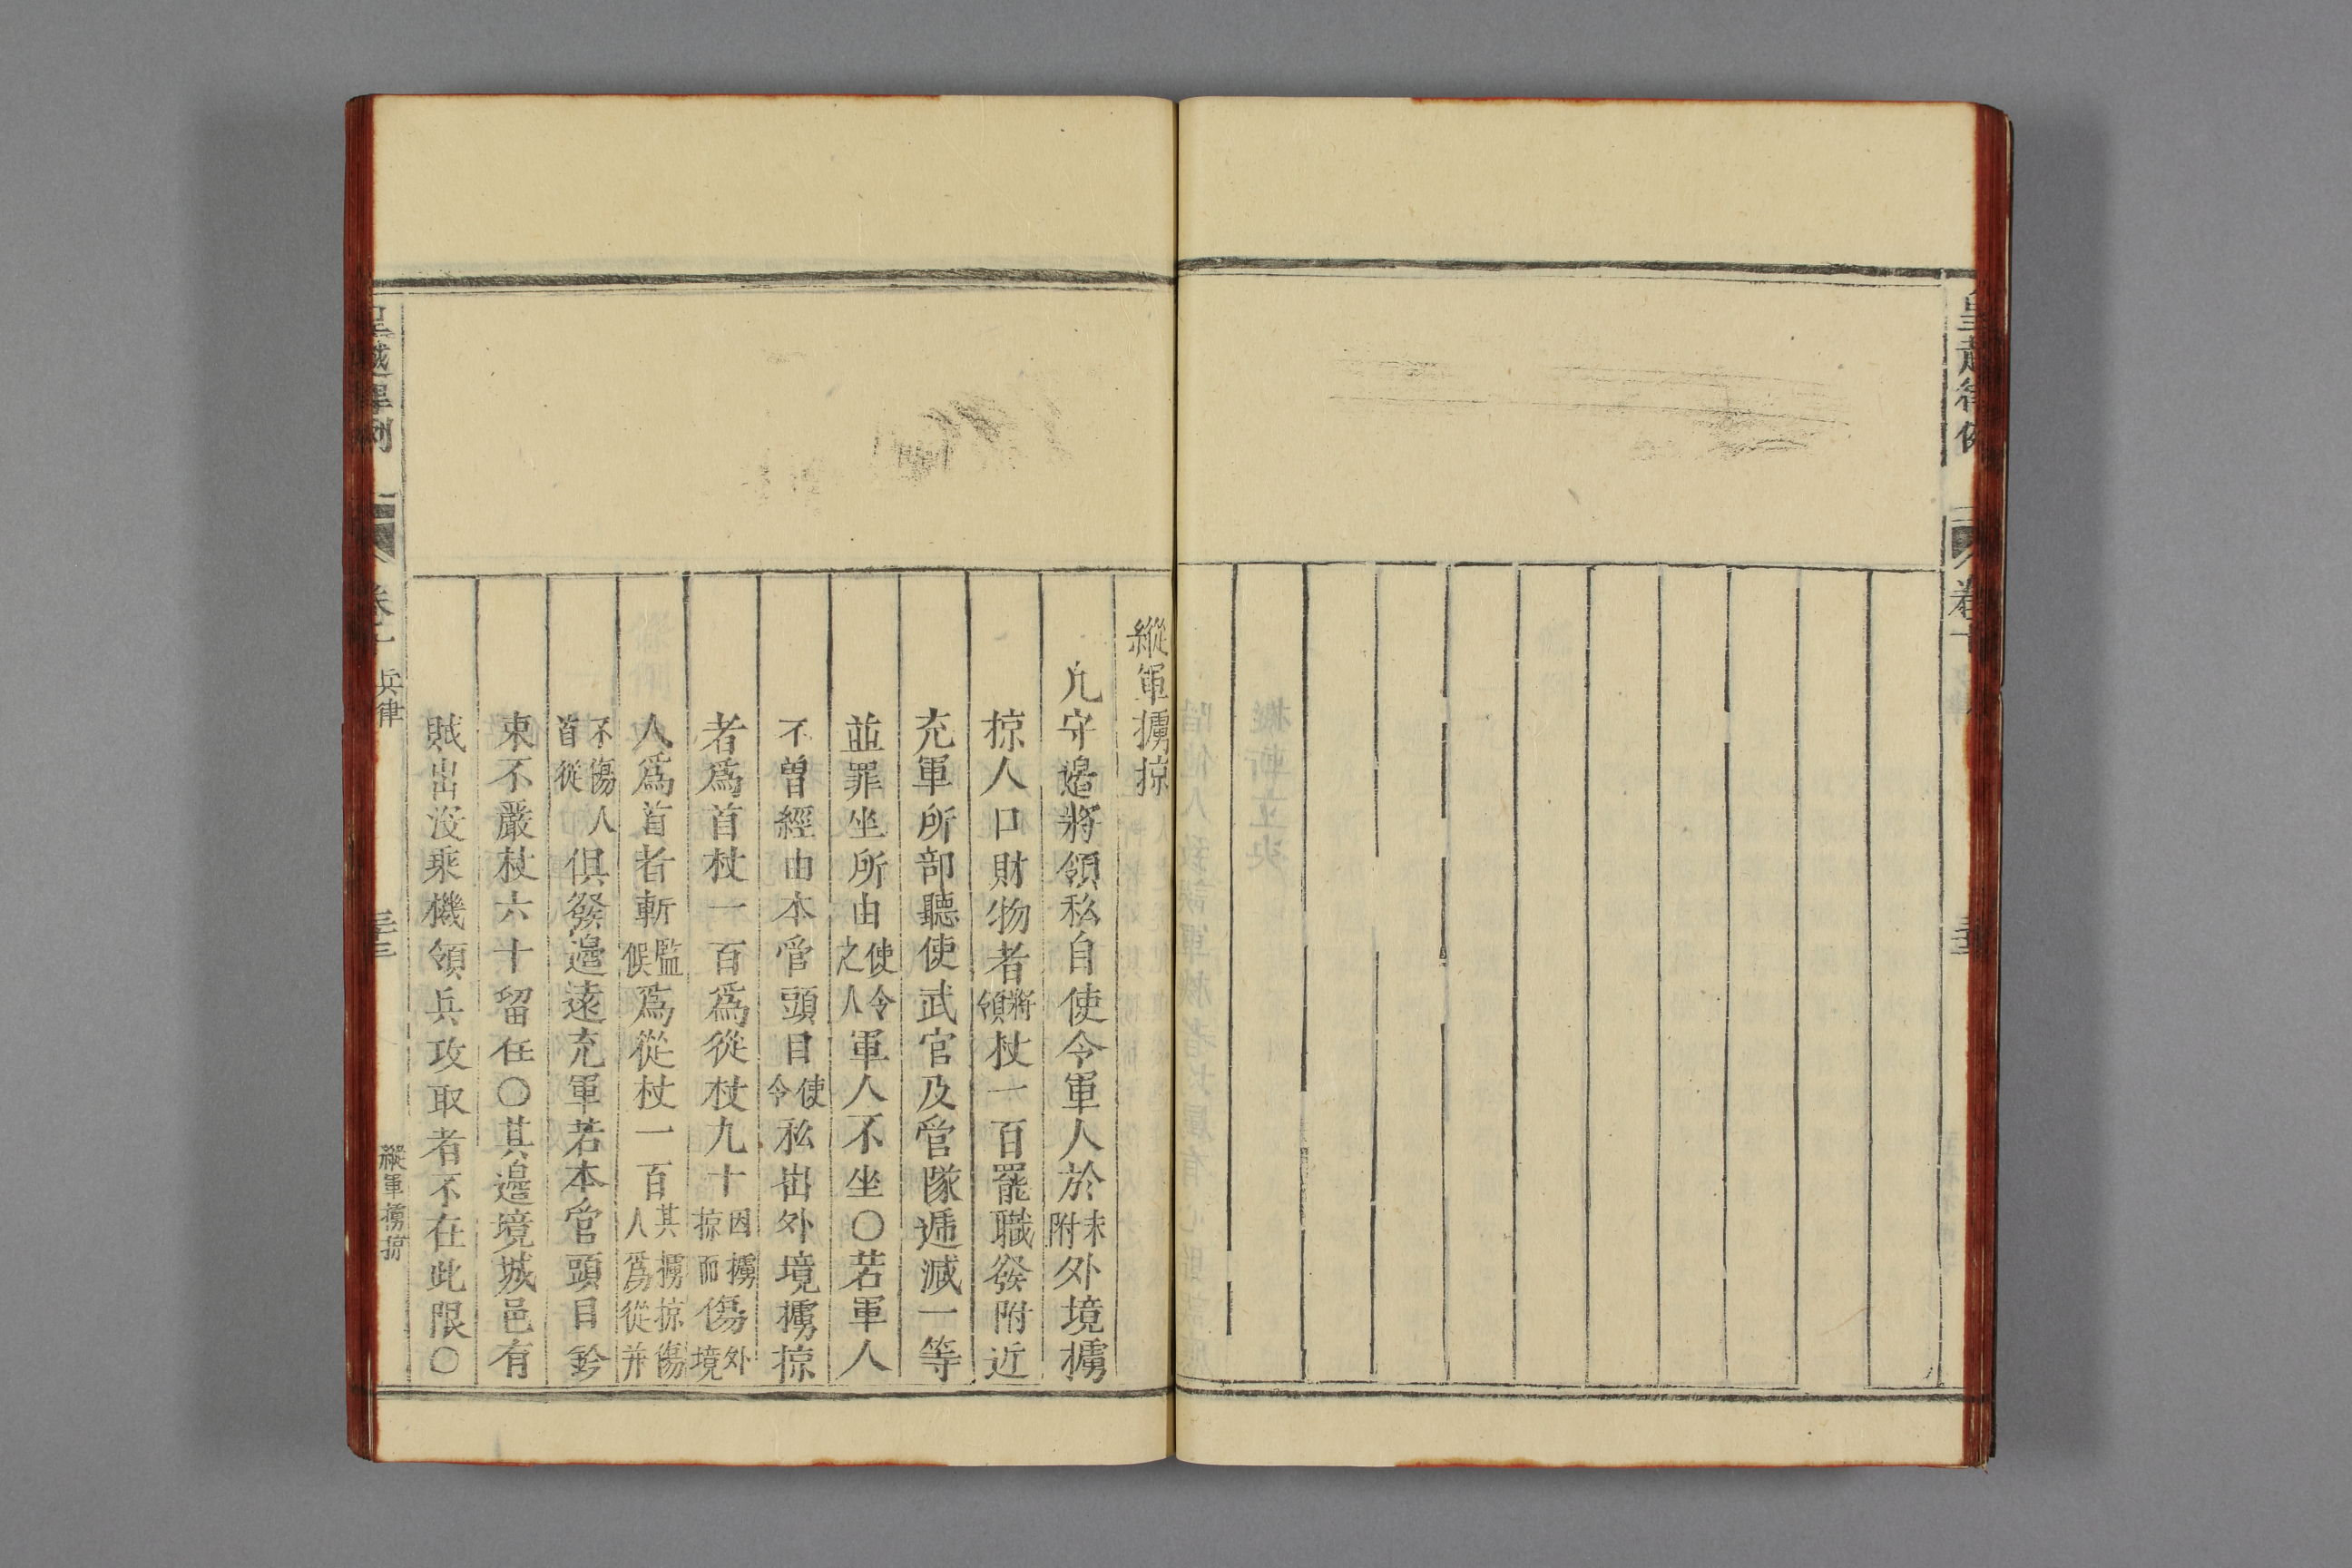 皇越律例
卷十
縱軍擄掠
凢守邊將領私自使令軍人於未附外境擄
掠人口財物者將領杖一百罷職發附近
充軍所部聽使武官及管隊遞減一等
並罪坐所由使令之人軍人不坐○若軍人
不曾經由本管頭目使令私出外境擄掠
者爲首杖一百爲從杖九十因擄掠而傷外境
人爲首者斬監候爲從杖一百其擄掠傷人爲從并
不傷人首從俱發邊遠充軍若本管頭目鈐
束不嚴杖六十留任○其邊境城邑有
賊出沒乘機領兵攻取者不在此限○
皇越律例
卷十
兵律
三十三
縱軍擄掠